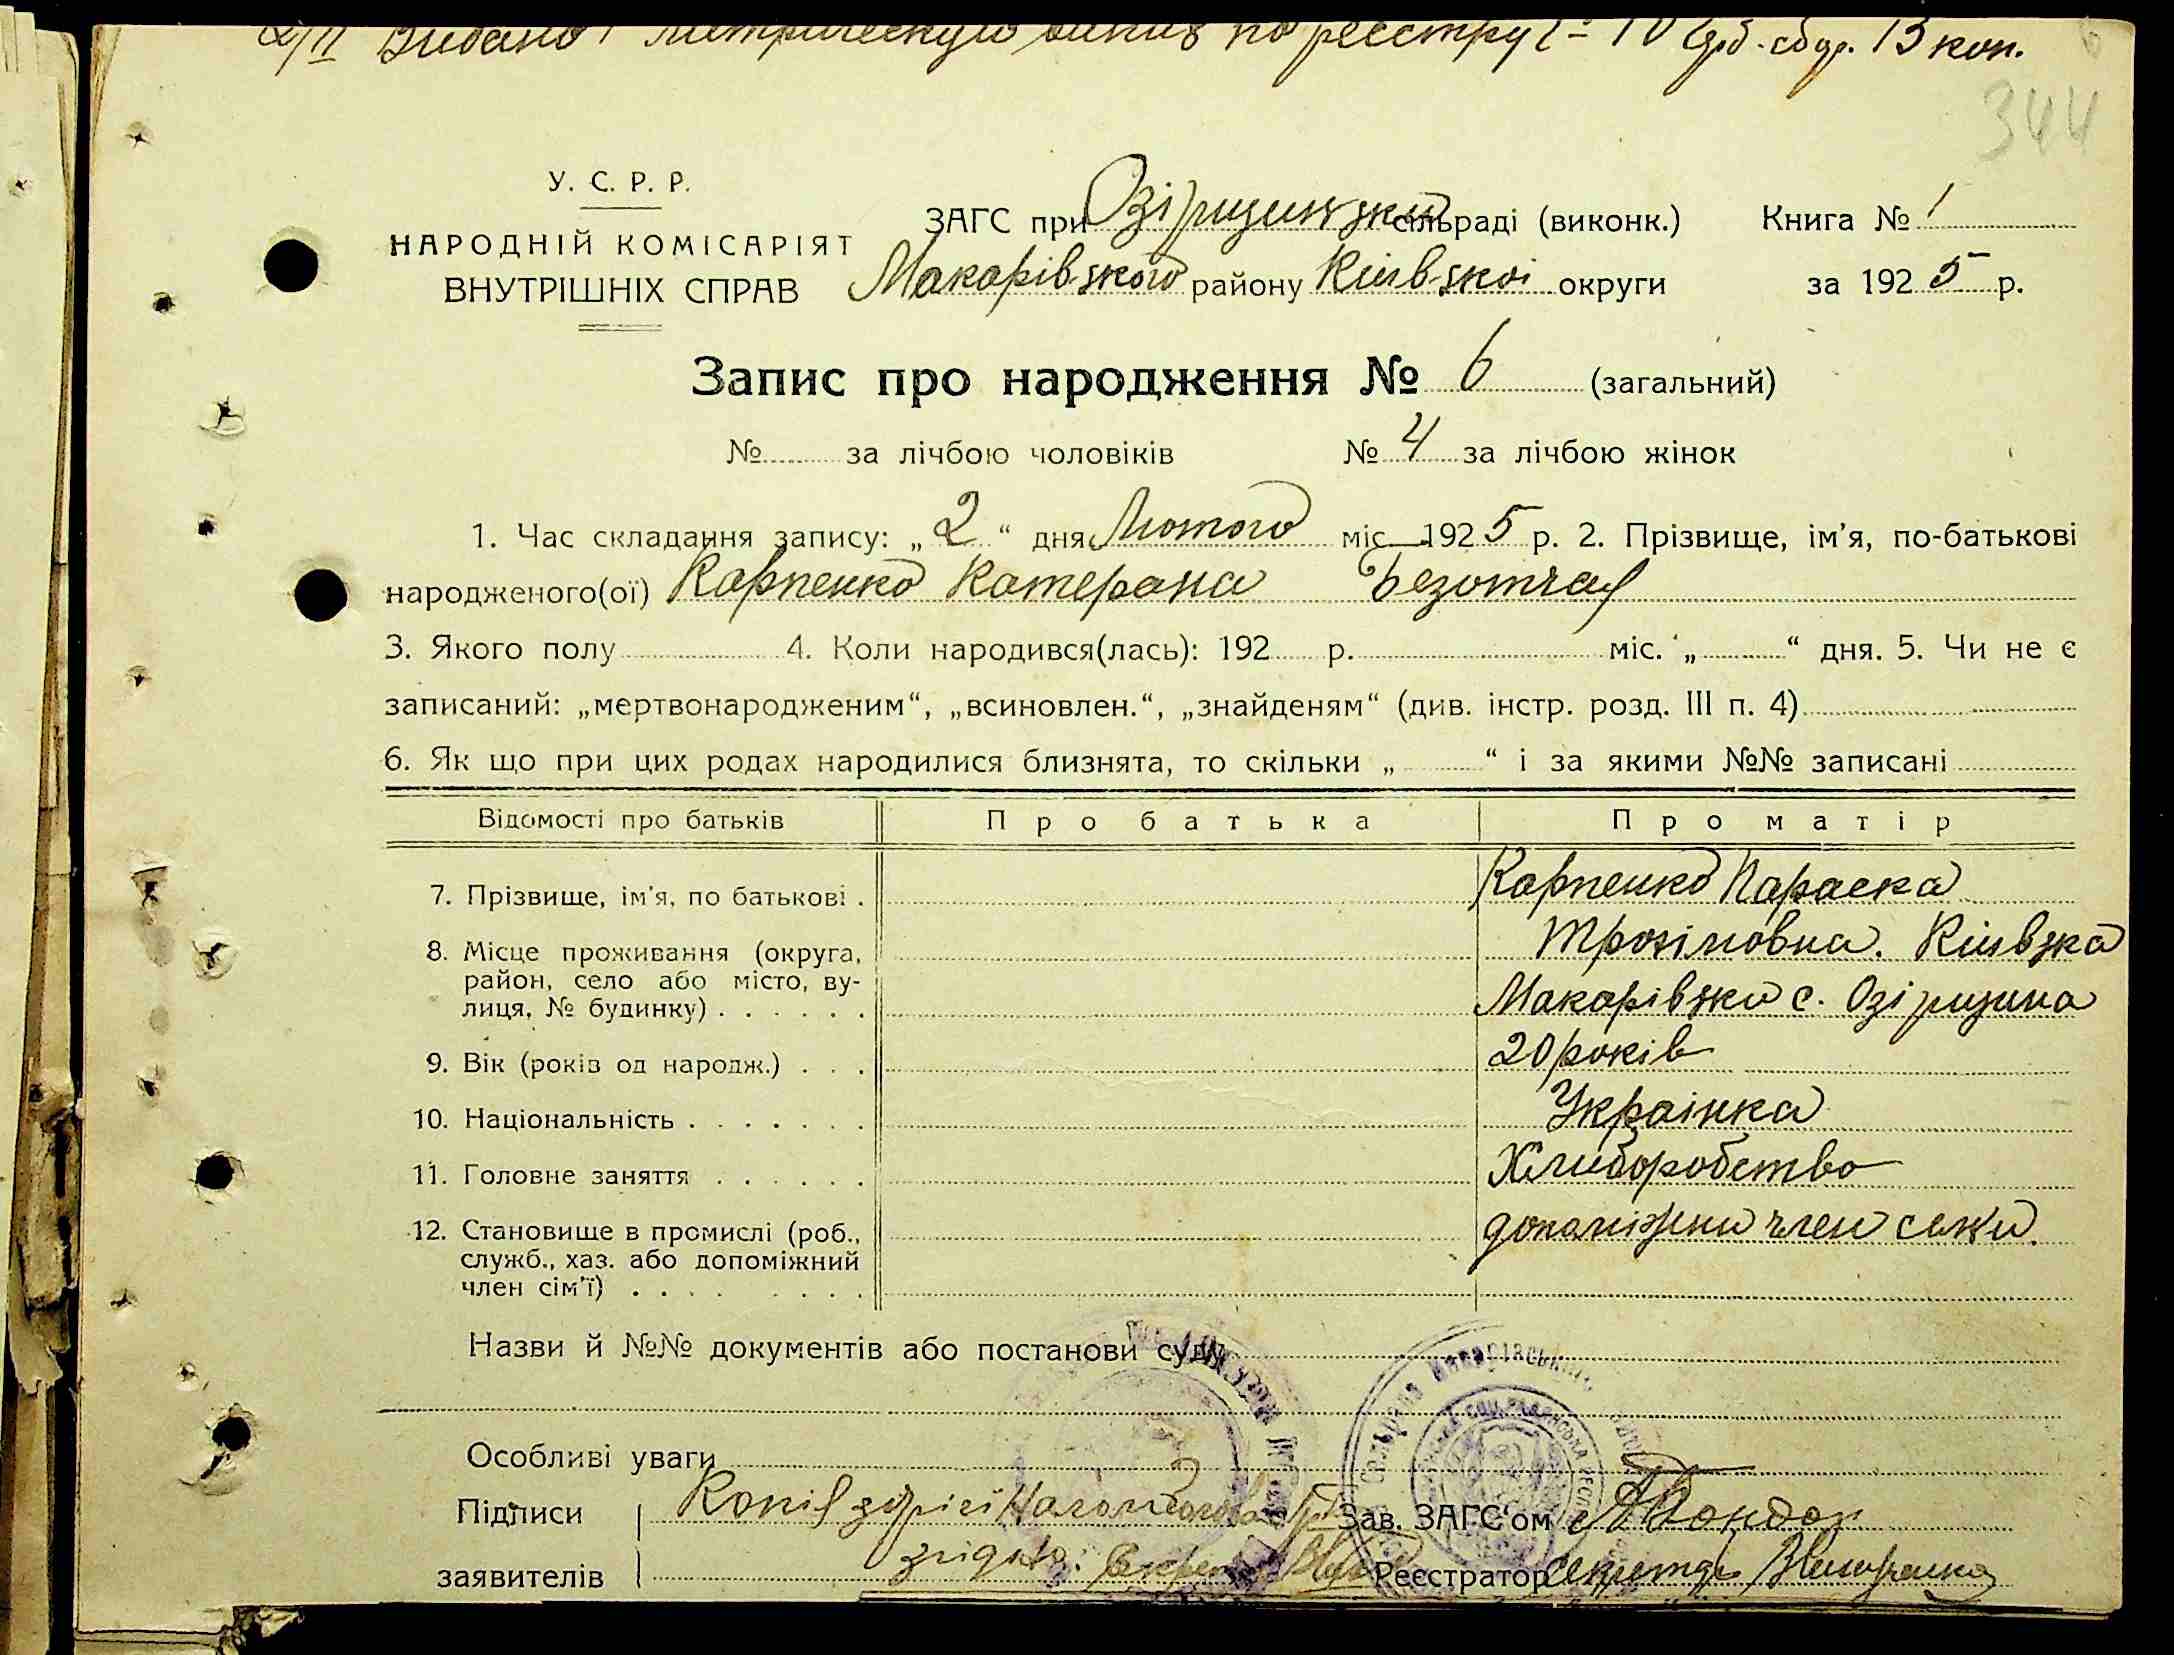 Видано метрическую випис по реєстру № 10 гєрб. сбор. 13 коп.
344
У. С. Р. Р.
НАРОДНІЙ КОМІСАРІЯТ
ВНУТРІШНІХ СПРАВ
ЗАГС при Озірщинський сільраді (виконк.) Книга № 1
Макарівского району Київської округи за 1925 р.
Запис про народження № 6 (загальний)
№ за лічбою чоловіків № 4 за лічбою жінок
1. Час складання запису: „2“ дня Лютого міс. 1925 р. 2. Прізвище, ім'я, по-батькові
народженого(ої) Карпенко Катерана Безотчая
3. Якого полу 4. Коли народився(лась): 192 р. міс. „ “ дня. 5. Чи не є
записаний: „мертвонародженим“, „всиновлен.“, „знайденям“ (див. інстр. розд. III п. 4)
6. Як що при цих родах народилися близнята, то скільки „ “ і за якими №№ записані
Відомості про батьків Про батька Про матір
7. Прізвище, ім'я, по батькові . Карпенко Параска
Трохімовна. Київзка
8. Місце проживання (округа,
район, село або місто, ву-
лиця, № будинку) . . . . . . Макарівзки с. Озірщина
9. Вік (років од народж.) . . . 20 років
10. Національність . . . . . . . Украінка
11. Головне заняття . . . . . . Хлиборобство
12. Становище в промислі (роб.,
служб., хаз. або допоміжний
член сім'ї) . . . . . . . . допоміжни член сємї.
Назви й №№ документів або постанови суду
Особливі уваги
Підписи Копія з
Зав. ЗАГС'ом
заявителів згідно:
Реєстратор секретарь